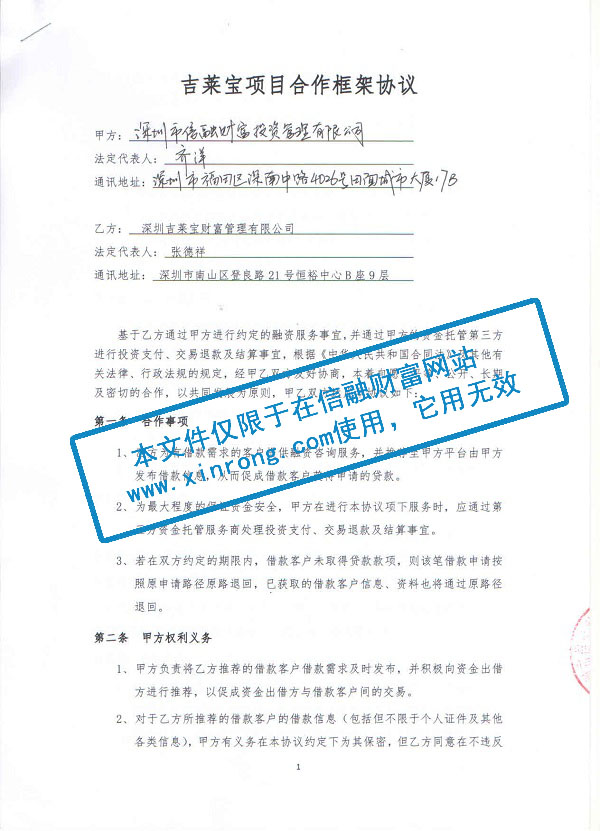 吉莱宝项目合作框架协议
甲方：深圳市信融财富投资管理有限公司
法定代表人：齐洋
通讯地址：深圳市福田区深南中路4026号田面城市大厦17B
乙方：深圳吉莱宝财富管理有限公司
法定代表人：张德祥
通讯地址：深圳市南山区登良路21号恒裕中心B座9层
基于乙方通过甲方进行约定的融资服务事宜，并通过甲方的资金托管第三方
进行投资支付、交易退款及结算事宜，根据《中华人民共和国合同法》及其他有
关法律、行政法规的规定，经甲乙双方友好协商，本着
长期
及密切的合作，以共同发展为原则，甲乙双方
协议如下：
第一条 合作事项
1、乙方为有借款需求的客户提供融资咨询服务，并推荐至甲方平台由甲方
发布借款信息，从而促成借款客户获得申请的贷款。
2、为最大程度的保证资金安全，甲方在进行本协议项下服务时，应通过第
三方资金托管服务商处理投资支付、交易退款及结算事宜。
3、若在双方约定的期限内，借款客户未取得贷款款项，则该笔借款申请按
照原申请路径原路退回，已获取的借款客户信息、资料也将通过原路径
退回。
第二条 甲方权利义务
1、甲方负责将乙方推荐的借款客户借款需求及时发布，并积极向资金出借
方进行推荐，以促成资金出借方与借款客户间的交易。
2、对于乙方所推荐的借款客户的借款信息（包括但不限于个人证件及其他
各类信息），甲方有义务在本协议约定下为其保密，但乙方同意在不违反
1
本文件仅限于在信融财富网站
www.xinrong.com使用，它用无效